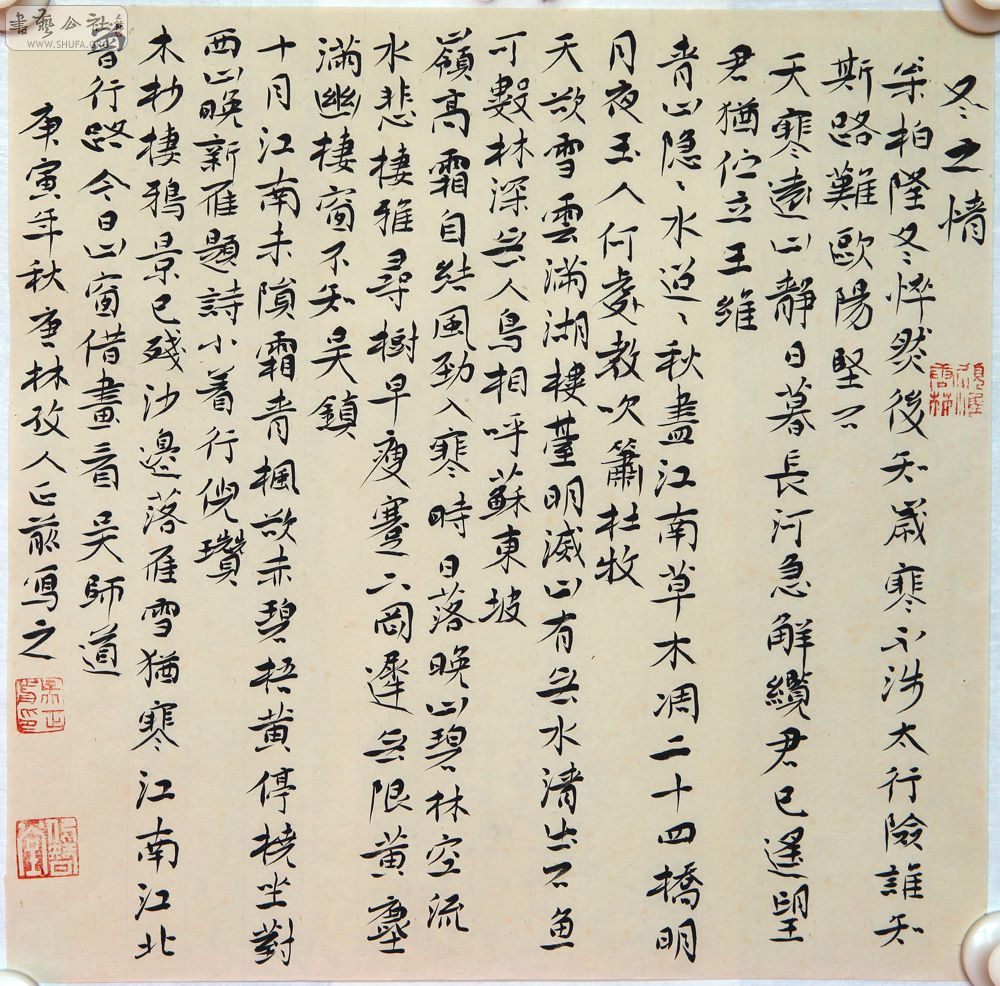 冬之情
枀柏隆冬悴然後知歲寒不涉太行險誰知
斯路難歐陽堅石
天寒遠山靜日暮長河急解纜君已遙望
君猶佇立王維
青山隱〻水迢〻秋盡江南草木凋二十四橋明
月夜玉人何處教吹簫杜牧
天欲雪雲滿湖樓臺明滅山有無水清出石魚
可數林深無人鳥相呼蘇東坡
嶺高霜自結風勁入寒時日落晚山碧林空流
水悲棲雅尋樹早瘦蹇下岡遲無限黃塵
滿幽棲窗不知吳鎮
十月江南未隕霜青楓欲赤碧梧黃停橈坐對
西山晚新雁題詩小著行倪瓚
木杪棲鴉景已殘沙邊落雁雪猶寒江南江北
曾行路今日山窗借畫看吳師道
庚寅年秋唐林孜人正前寫之
書藝公社